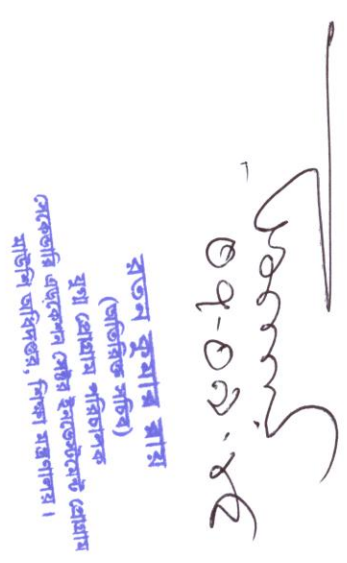 রতন কুমার রায়
(অতিরিক্ত সচিব)
যুগ্ম প্রোগ্রাম পরিচালক
সেকেন্ডারি এডুকেশন সেক্টর ইনভেস্টমেন্ট প্রোগ্রাম
মাউশি অধিদপ্তর, শিক্ষা মন্ত্রণালয়।